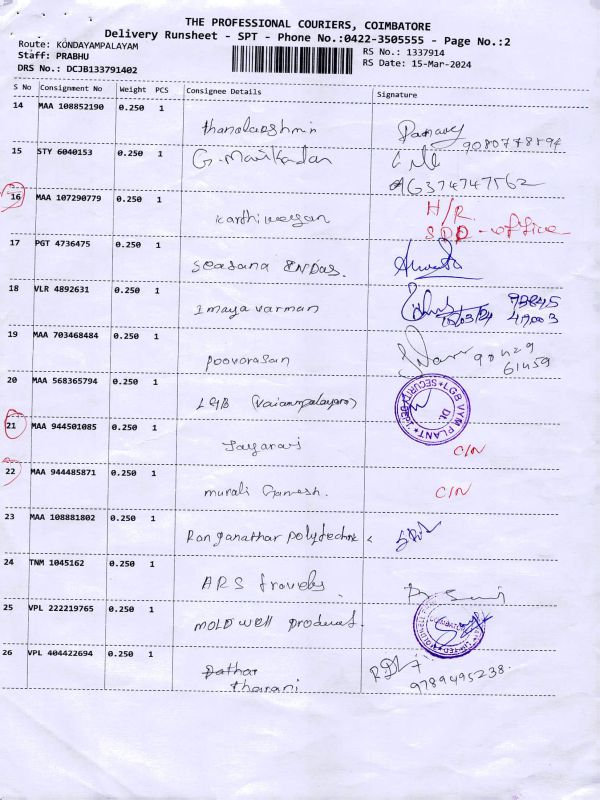 THE PROFESSIONAL COURIERS, COIMBATORE
Delivery Runsheet - SPT - Phone No.:0422-3505555 - Page No.:2
Route: KONDAYAMPALAYAM
RS No.: 1337914
Staff: PRABHU
RS Date: 15-Mar-2024
DRS No.: DCJB133791402
S No Consignment No Weight PCS Consignee Details Signature
14 MAA 108852190 0.250 1
9080778594
15 STY 6040153 0.250 1 G. Manikadan
AG374747562
16 MAA 107290779 0.250 1 Karthikeyan H/R
- office
17 PGT 4736475 0.250 1
Seasana ENDAS.
18 VLR 4892631 0.250 1 Imaya varman 93845
15/03/24 47003
19 MAA 703468484 0.250 1
Poovorasan 90429
61459
20 MAA 568365794 0.250 1
LGB (Vaiammpalayam) LGB VYM PLANT SECURITY
21 MAA 944501085 0.250 1
Jayaraj C/N
22 MAA 944485871 0.250 1
murali Ganesh. C/N
23 MAA 108881802 0.250 1
Ranganathar polytechnic
24 TNM 1045162 0.250 1
ARS travels
25 VPL 222219765 0.250 1
MOLD well product.
26 VPL 404422694 0.250 1
Pathar
tharani 9789495238.